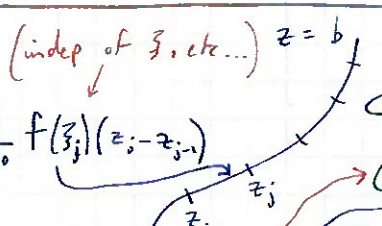 (indep of ξ, etc...) z = b
f(ξ_j)(z_j - z_{j-1})
z_j
z